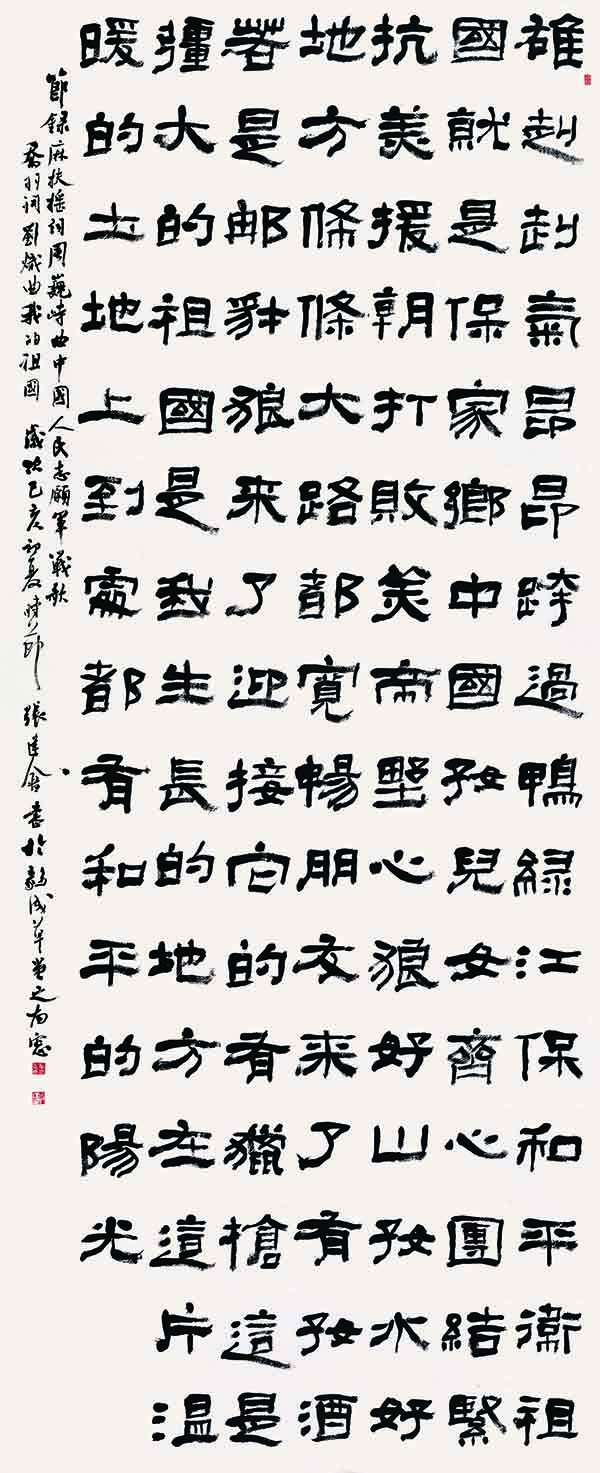 雄赳赳氣昂昂跨過鴨綠江保和平衛祖
國就是保家鄉中國好兒女齊心團結緊
抗美援朝打敗美帝野心狼好山好水好
地方條條大路都寬暢朋友來了有好酒
若是那豺狼來了迎接它的有獵槍這是
彊大的祖國是我生長的地方在這片温
暖的土地上到處都有和平的陽光
節録麻扶摇詞周巍峙曲中國人民志願軍戰歌
喬羽詞劉熾曲我的祖國 歲次己亥初夏時節 張建會書於毅成草堂之南窗